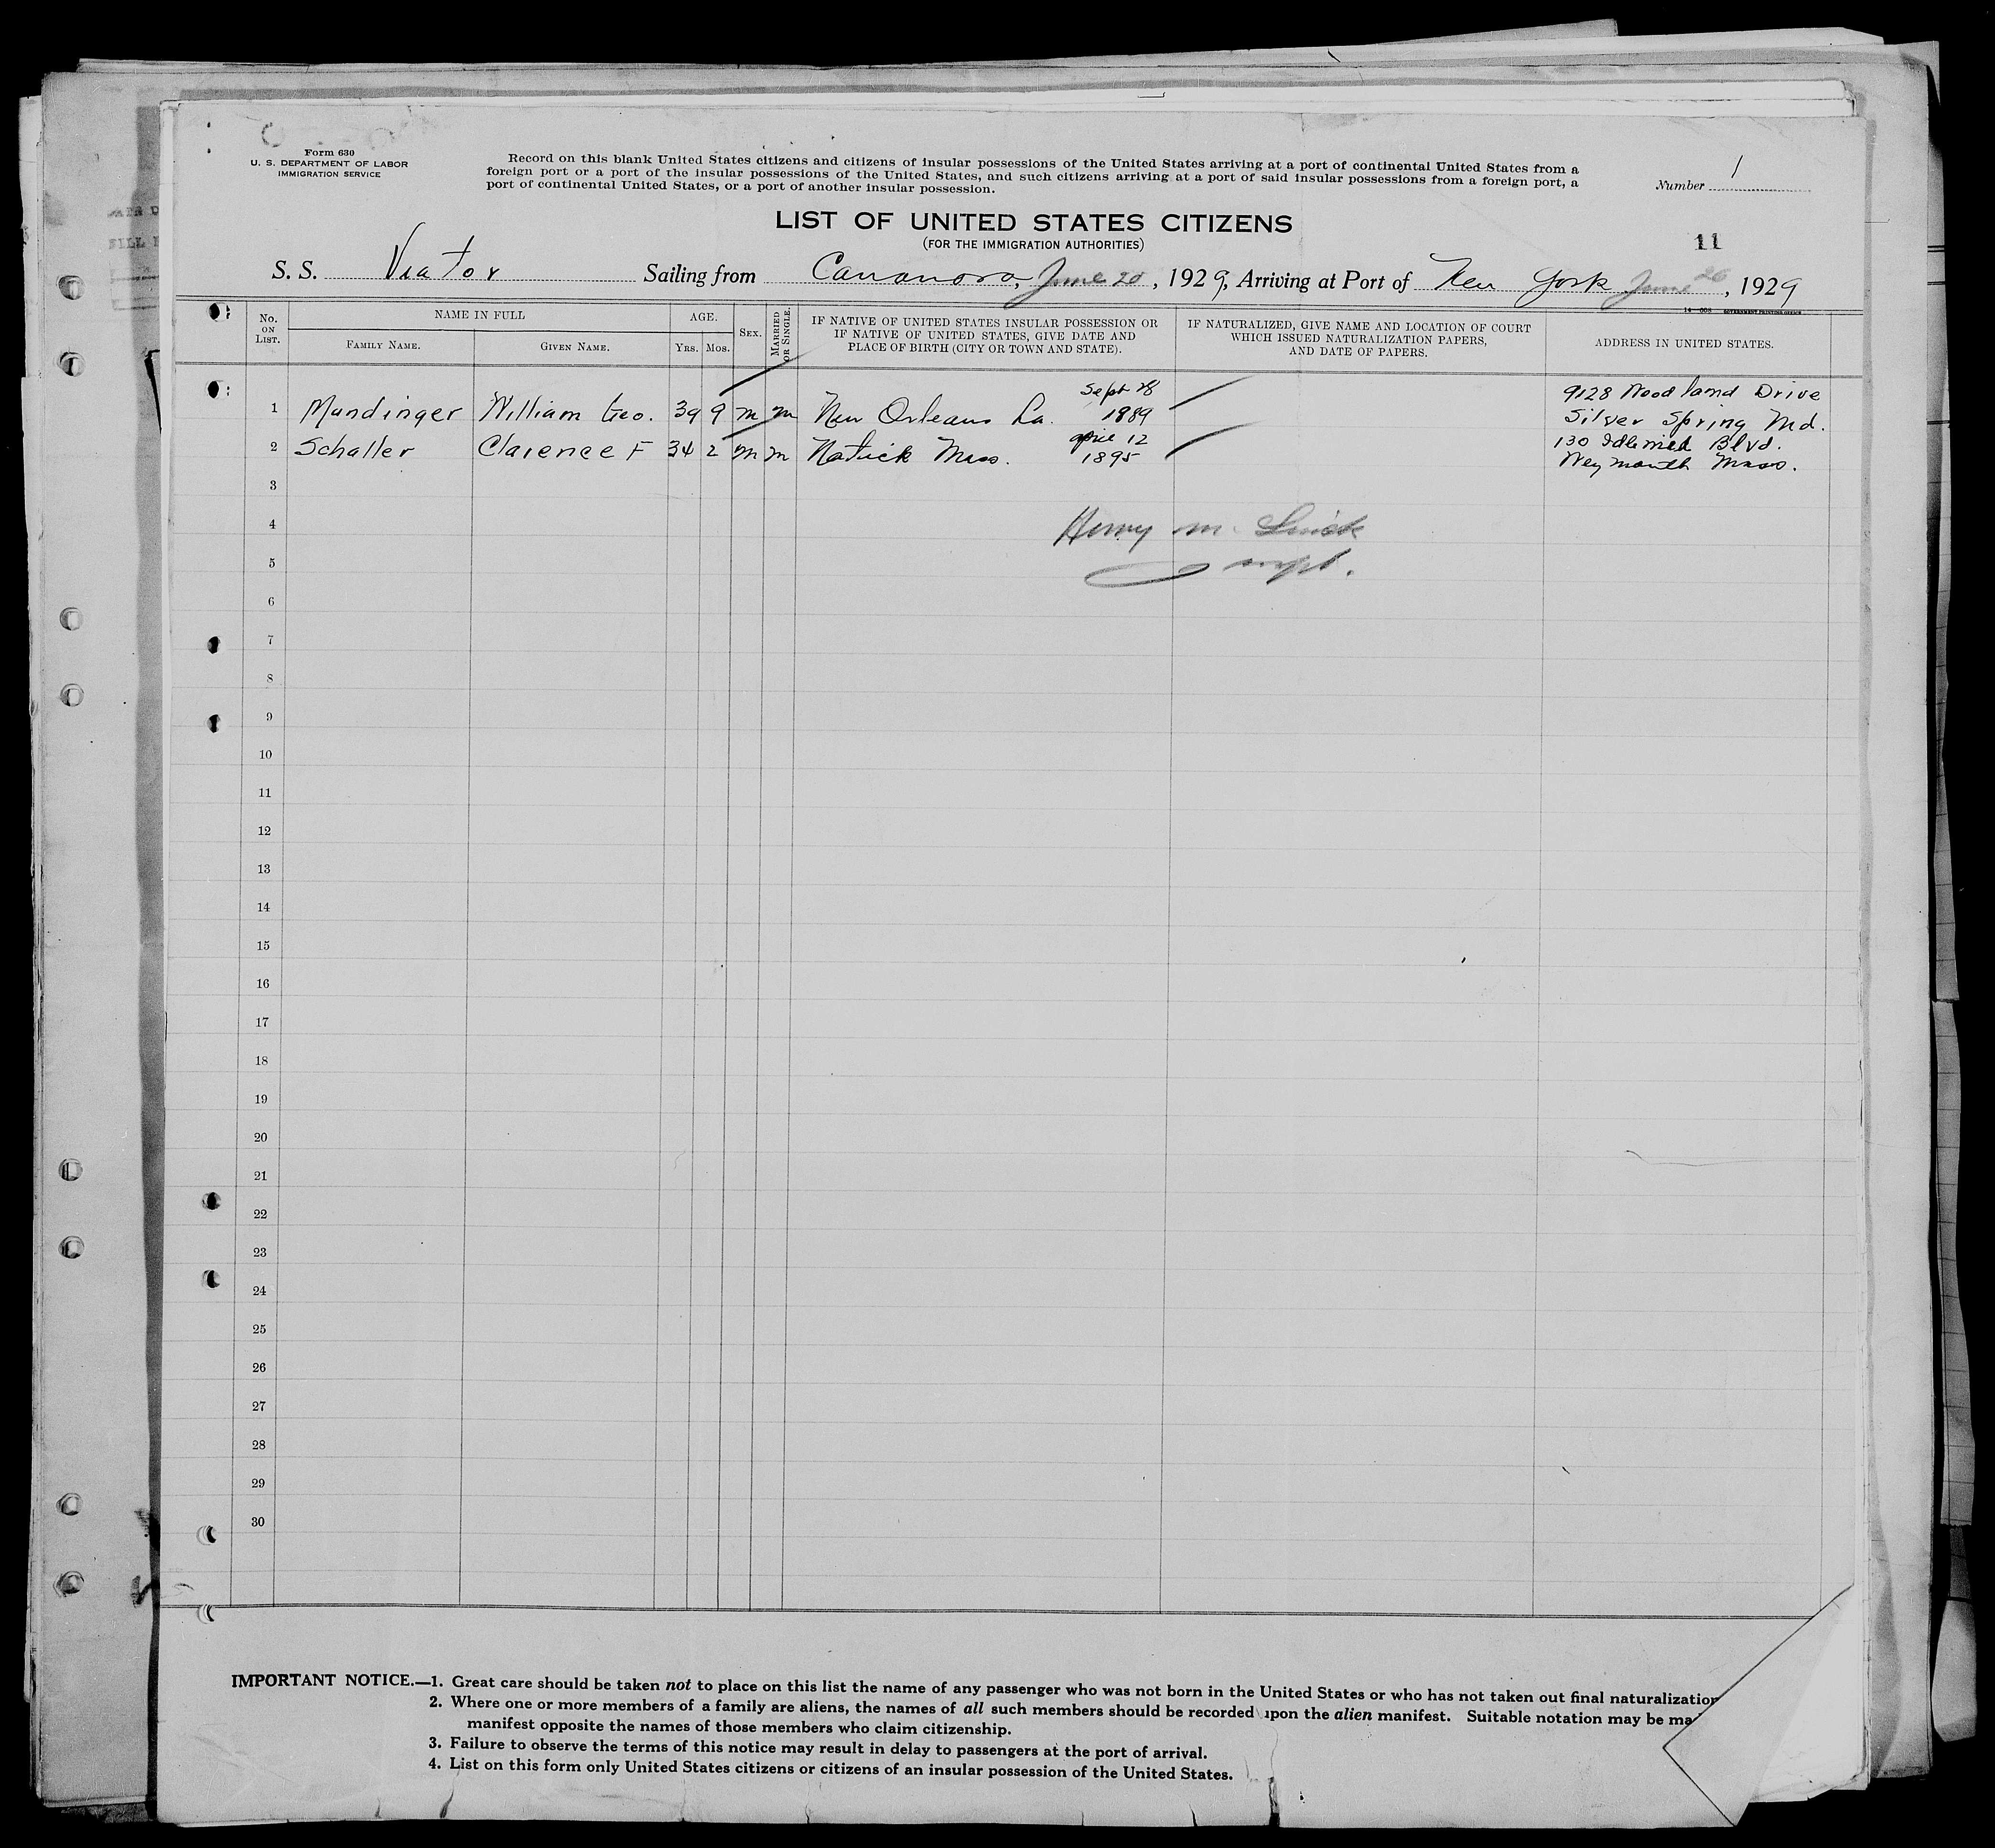 Form 630
U. S. DEPARTMENT OF LABOR
IMMIGRATION SERVICE
Record on this blank United States citizens and citizens of insular possessions of the United States arriving at a port of continental United States from a
foreign port or a port of the insular possessions of the United States, and such citizens arriving at a port of said insular possessions from a foreign port, a
port of continental United States, or a port of another insular possession.
Number 1
LIST OF UNITED STATES CITIZENS
(FOR THE IMMIGRATION AUTHORITIES)
11
S. S. Viator Sailing from June 20, 1929, Arriving at Port of New York June 26, 1929
14—608 GOVERNMENT PRINTING OFFICE
No. ON LIST.
NAME IN FULL
FAMILY NAME.
GIVEN NAME.
AGE.
YRS. MOS.
SEX.
MARRIED OR SINGLE.
IF NATIVE OF UNITED STATES INSULAR POSSESSION OR
IF NATIVE OF UNITED STATES, GIVE DATE AND
PLACE OF BIRTH (CITY OR TOWN AND STATE).
IF NATURALIZED, GIVE NAME AND LOCATION OF COURT
WHICH ISSUED NATURALIZATION PAPERS,
AND DATE OF PAPERS.
ADDRESS IN UNITED STATES.
1 Mundinger William Geo. 39 9 m m New Orleans La. Sept 28 1889 9128 Woodland Drive
Silver Spring Md.
2 Schaller Clarence F 34 2 m m Natick Mass. April 12 1895 130 Blvd.
Weymouth Mass.
3
4
Henry M.
5
6
7
8
9
10
11
12
13
14
15
16
17
18
19
20
21
22
23
24
25
26
27
28
29
30
IMPORTANT NOTICE.—1. Great care should be taken not to place on this list the name of any passenger who was not born in the United States or who has not taken out final naturalization
2. Where one or more members of a family are aliens, the names of all such members should be recorded upon the alien manifest. Suitable notation may be mad
manifest opposite the names of those members who claim citizenship.
3. Failure to observe the terms of this notice may result in delay to passengers at the port of arrival.
4. List on this form only United States citizens or citizens of an insular possession of the United States.